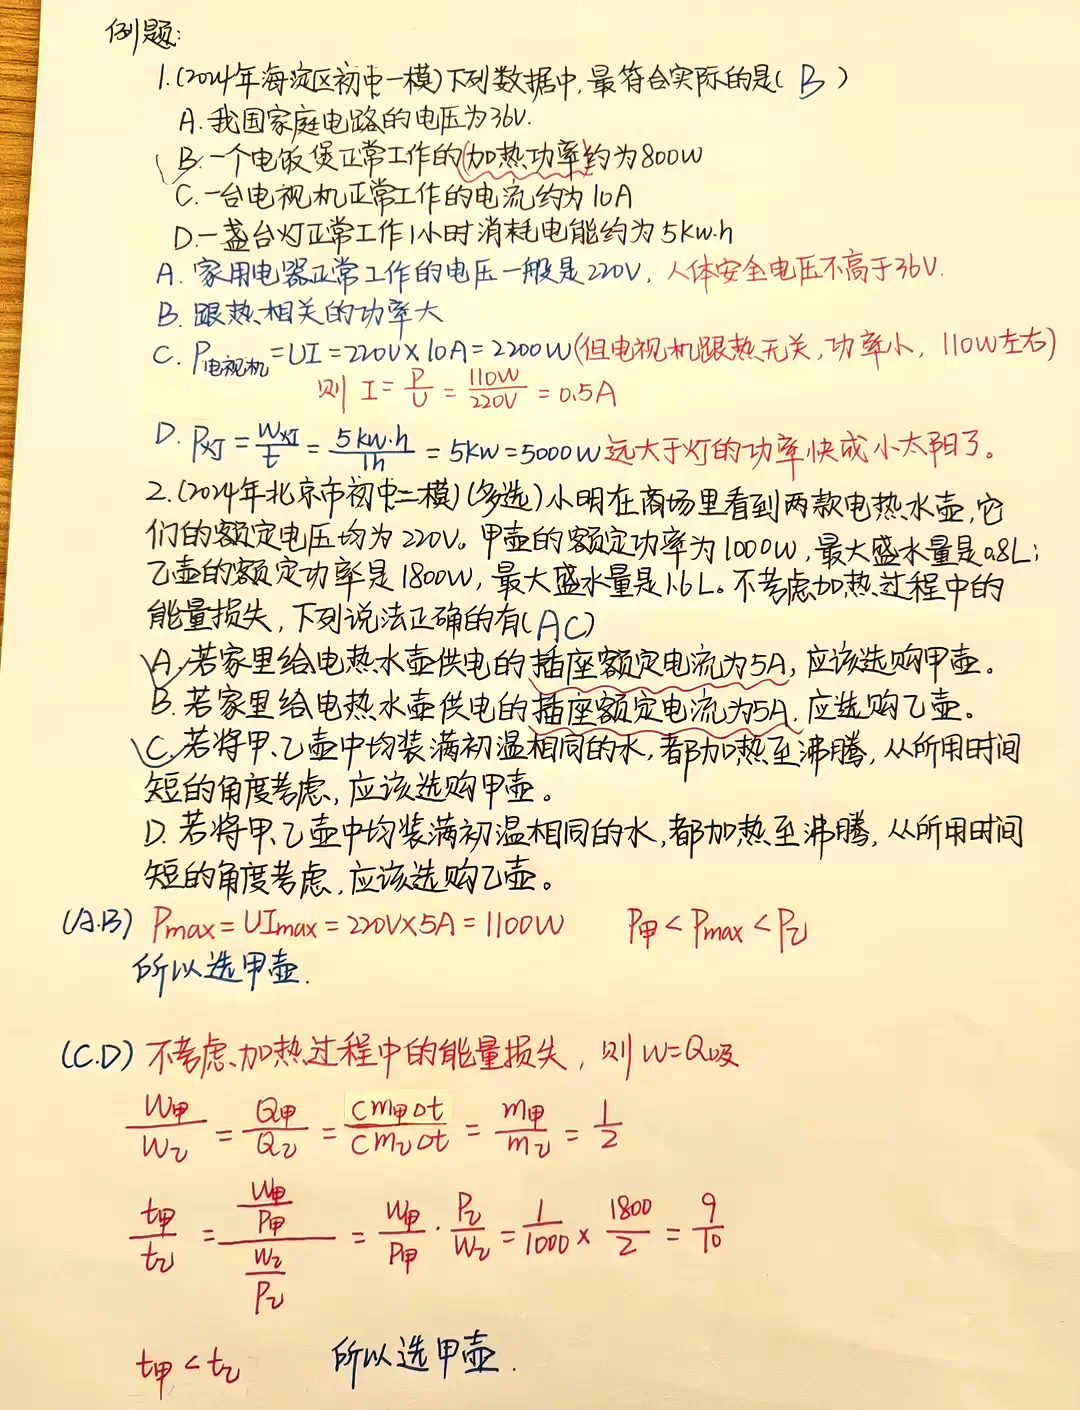 例题:
1.(2024年海淀区初中一模)下列数据中,最符合实际的是( B )
A.我国家庭电路的电压为36V.
B.一个电饭煲正常工作的(加热功率)约为800W
C.一台电视机正常工作的电流约为10A
D.一盏台灯正常工作1小时消耗电能约为5kw.h
A. 家用电器正常工作的电压一般是220V, 人体安全电压不高于36V.
B. 跟热相关的功率大
C. P电视机=UI=220V×10A=2200W(但电视机跟热无关,功率小, 110W左右)
则 I=P/U=110W/220V=0.5A
D. P灯=W灯/t=5kw.h/1h=5kw=5000W远大于灯的功率快成小太阳了。
2.(2024年北京市初中二模)(多选)小明在商场里看到两款电热水壶,它
们的额定电压均为220V。甲壶的额定功率为1000W,最大盛水量是0.8L;
乙壶的额定功率是1800W,最大盛水量是1.6L。不考虑加热过程中的
能量损失,下列说法正确的有(AC)
A.若家里给电热水壶供电的插座额定电流为5A,应该选购甲壶。
B.若家里给电热水壶供电的插座额定电流为5A.应选购乙壶。
C.若将甲、乙壶中均装满初温相同的水,都加热至沸腾,从所用时间
短的角度考虑,应该选购甲壶。
D.若将甲、乙壶中均装满初温相同的水,都加热至沸腾,从所用时间
短的角度考虑,应该选购乙壶。
(A.B) Pmax=UImax=220V×5A=1100W P甲<Pmax<P乙
所以选甲壶.
(C.D) 不考虑加热过程中的能量损失,则W=Q吸
W甲/W乙=Q甲/Q乙=cm甲Δt/cm乙Δt=m甲/m乙=1/2
t甲/t乙=(W甲/P甲)/(W乙/P乙)=W甲/P甲·P乙/W乙=1/1000×1800/2=9/10
t甲<t乙 所以选甲壶.